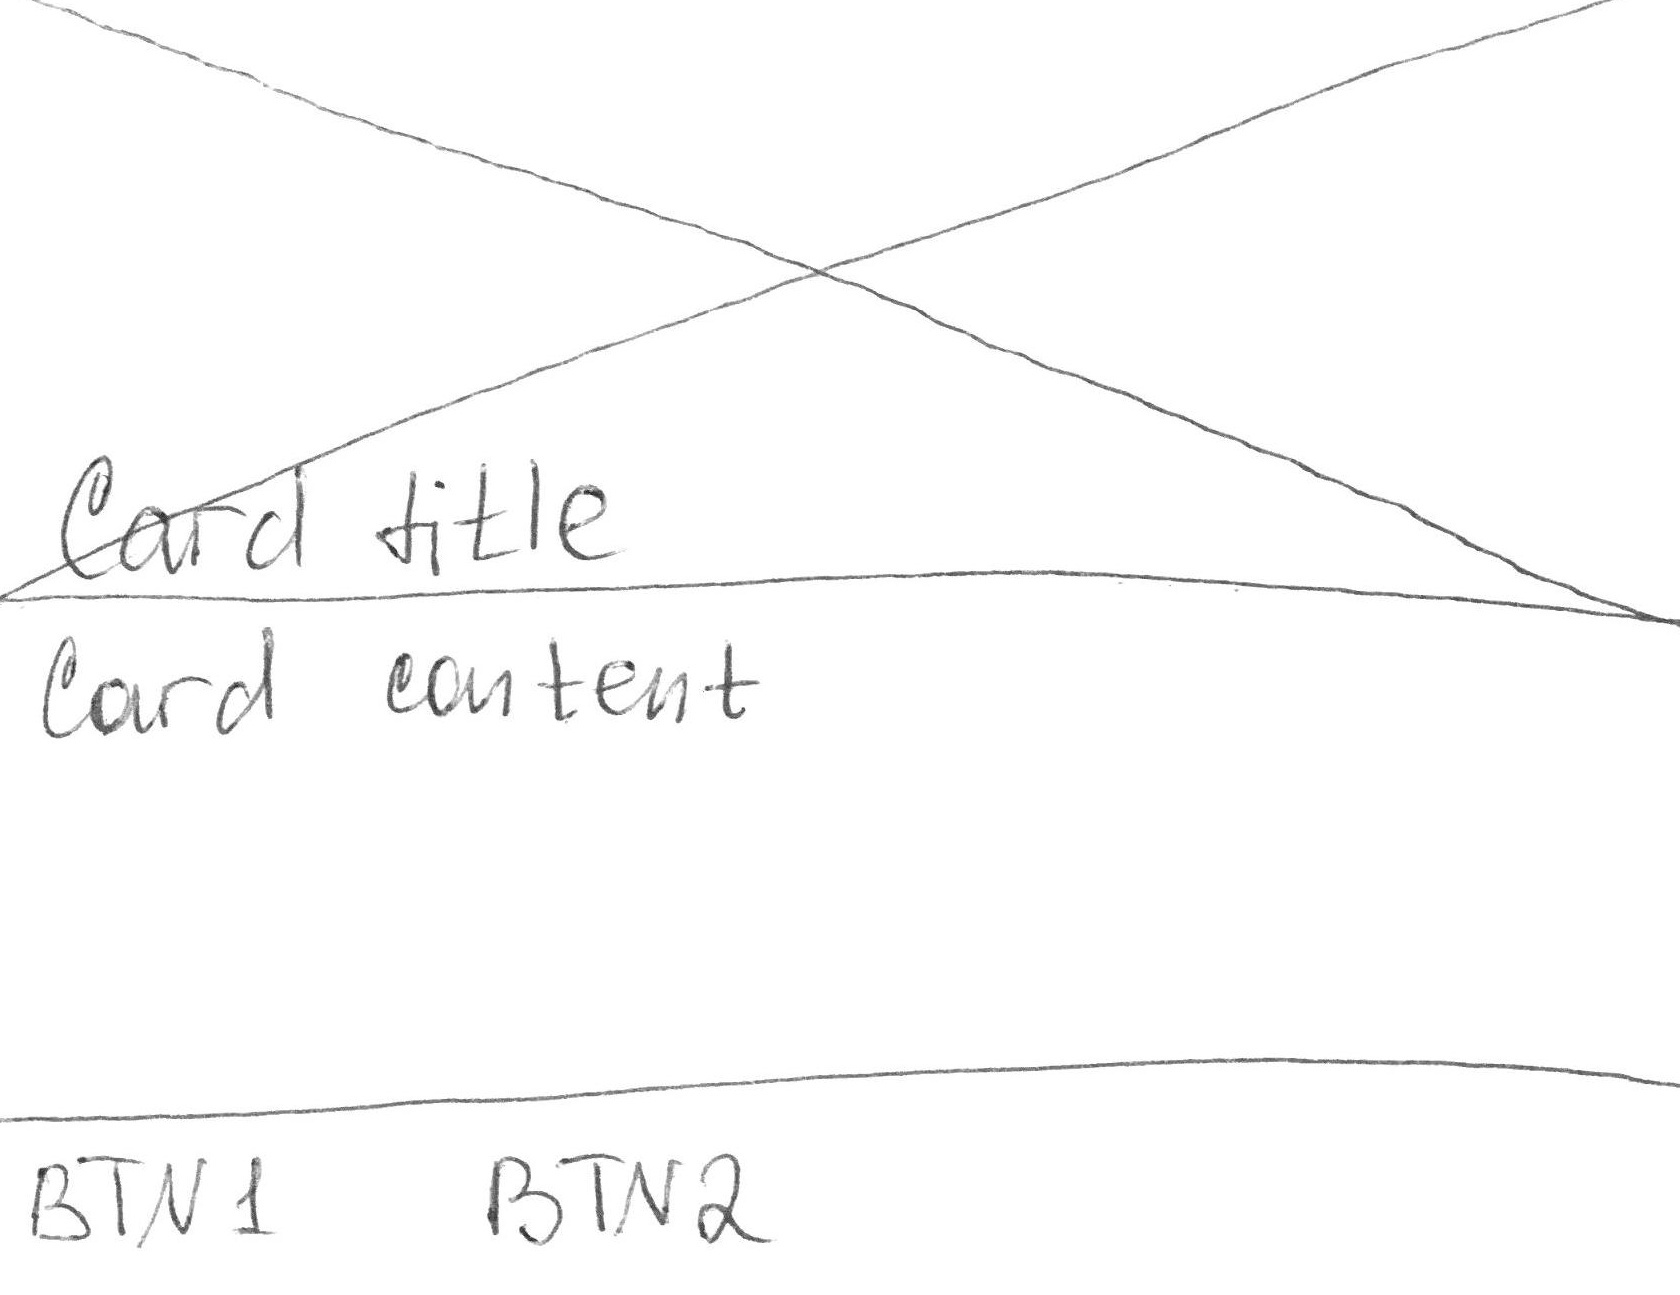 Card title
Card content
BTN1 BTN2